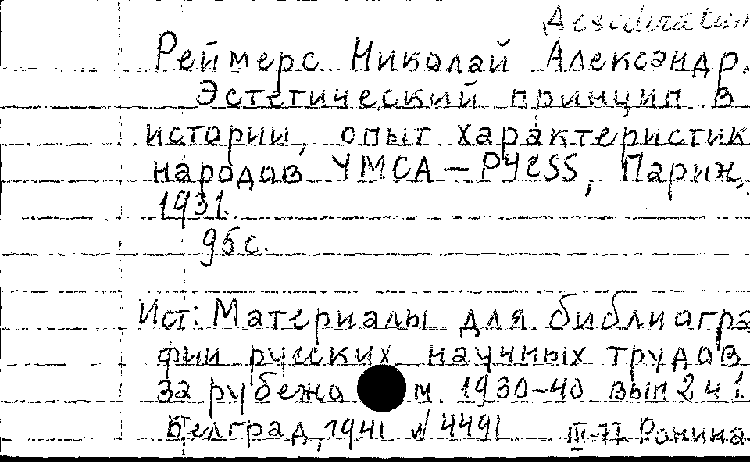 Реймерс Николай Александр.
Эстетический принцип в
истории, опыт характеристик
народов YMCA-PYCSS, Париж,
1931.
95 с.
Ист: Материалы для библиагра
фии русских научных трудов
за рубежо м 1930-40 вып 2 ч 1.
Белград, 1941 № 4491 III-77 Ронина